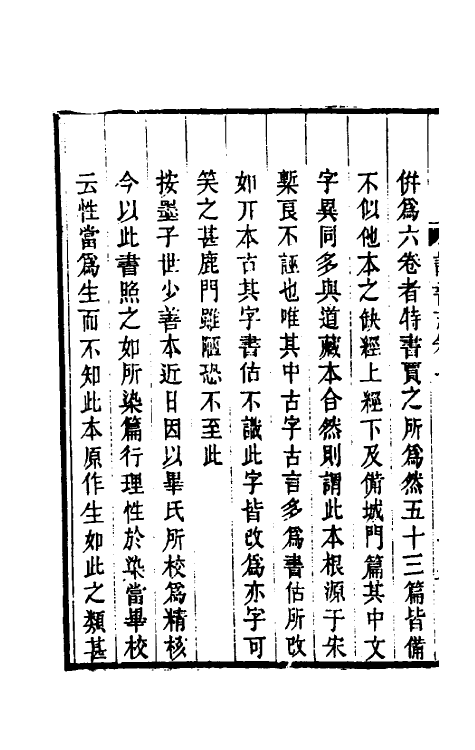 併爲六卷者特書賈之所爲然五十三篇皆備
不似他本之缺經上經下及備城門篇其中文
字異同多與道藏本合然則謂此本根源于宋
槧良不誣也唯其中古字古言多爲書估所改
如丌本古其字書估不識此字皆改爲亦字可
笑之甚鹿門雖陋恐不至此
按墨子世少善本近日因以畢氏所校爲精核
今以此書照之如所染篇行理性於染當畢校
云性當爲生而不知此本原作生如此之類甚